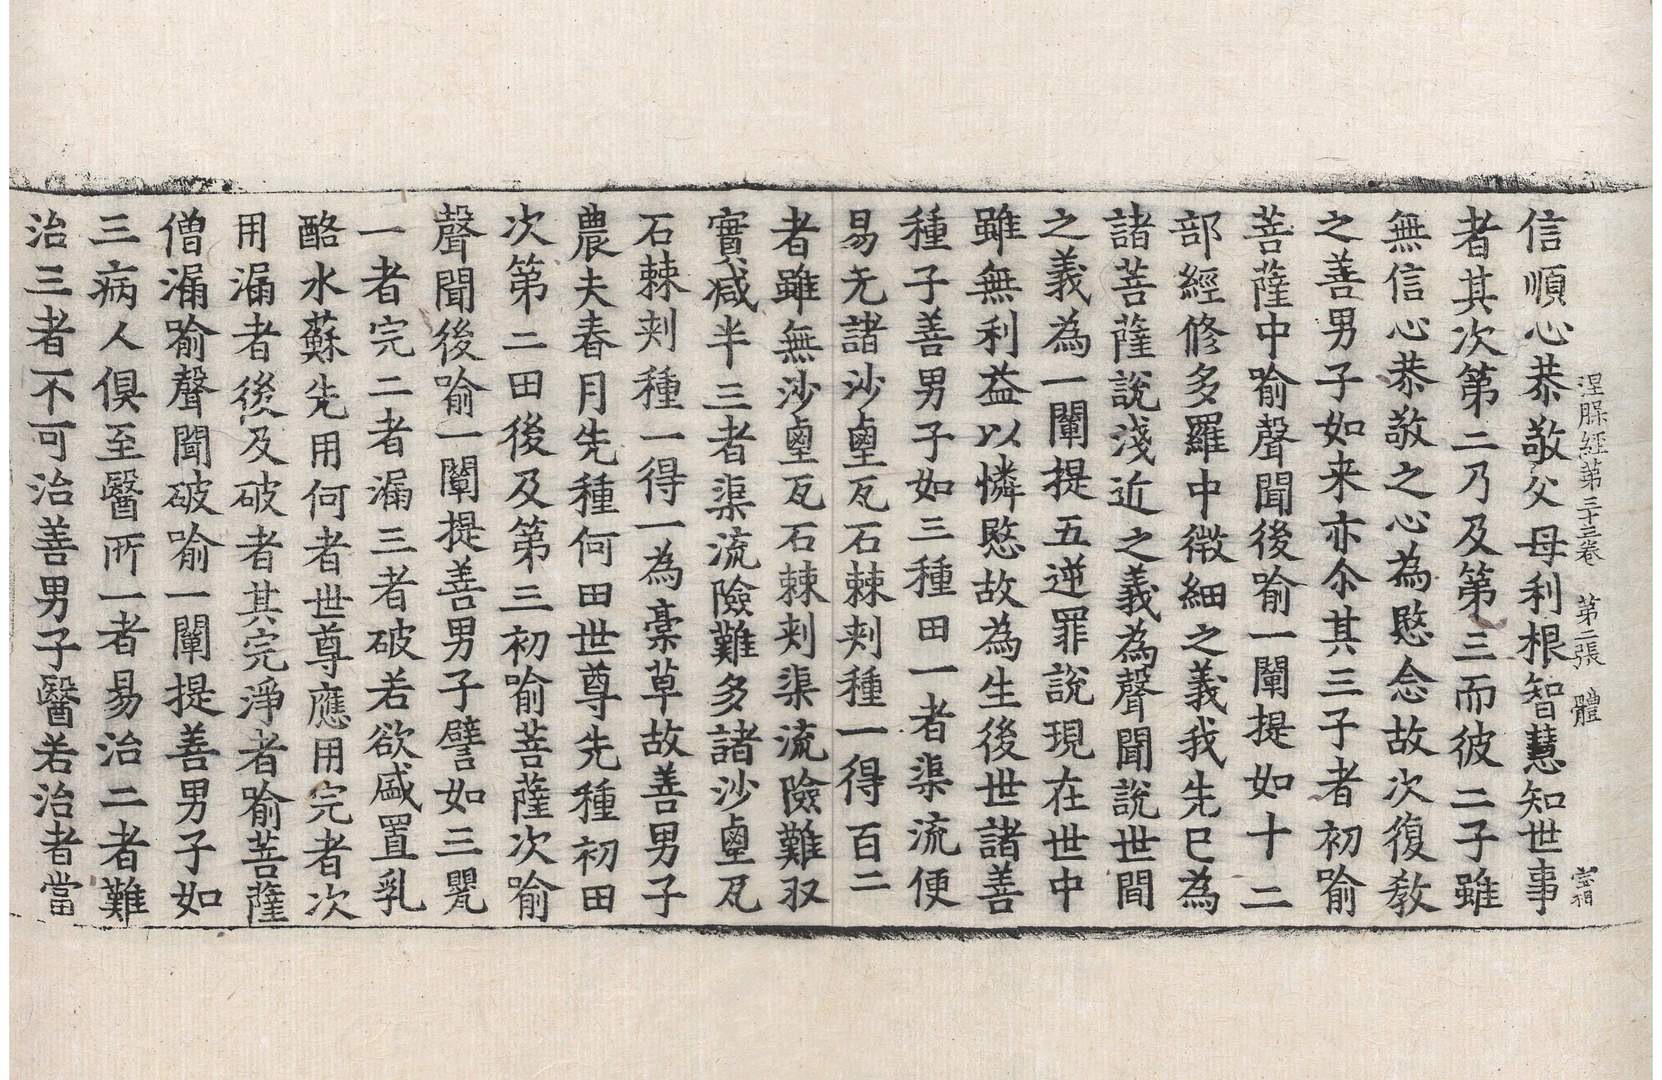 涅槃經第三十三卷 第二張 體
信順心恭敬父母利根智慧知世事
者其次第二乃及第三而彼二子雖
無信心恭敬之心為愍念故次復教
之善男子如来亦尒其三子者初喻
菩薩中喻聲聞後喻一闡提如十二
部經修多羅中微細之義我先已為
諸菩薩說淺近之義為聲聞說世間
之義為一闡提五逆罪說現在世中
雖無利益以憐愍故為生後世諸善
種子善男子如三種田一者渠流便
易无諸沙鹵瓦石棘刾種一得百二
者雖無沙鹵瓦石棘刾渠流險難収
實减半三者渠流險難多諸沙鹵瓦
石棘刾種一得一為藁草故善男子
農夫春月先種何田世尊先種初田
次第二田後及第三初喻菩薩次喻
聲聞後喻一闡提善男子譬如三器
一者完二者漏三者破若欲盛置乳
酪水蘇先用何者世尊應用完者次
用漏者後及破者其完淨者喻菩薩
僧漏喻聲聞破喻一闡提善男子如
三病人俱至醫所一者易治二者難
治三者不可治善男子醫若治者當